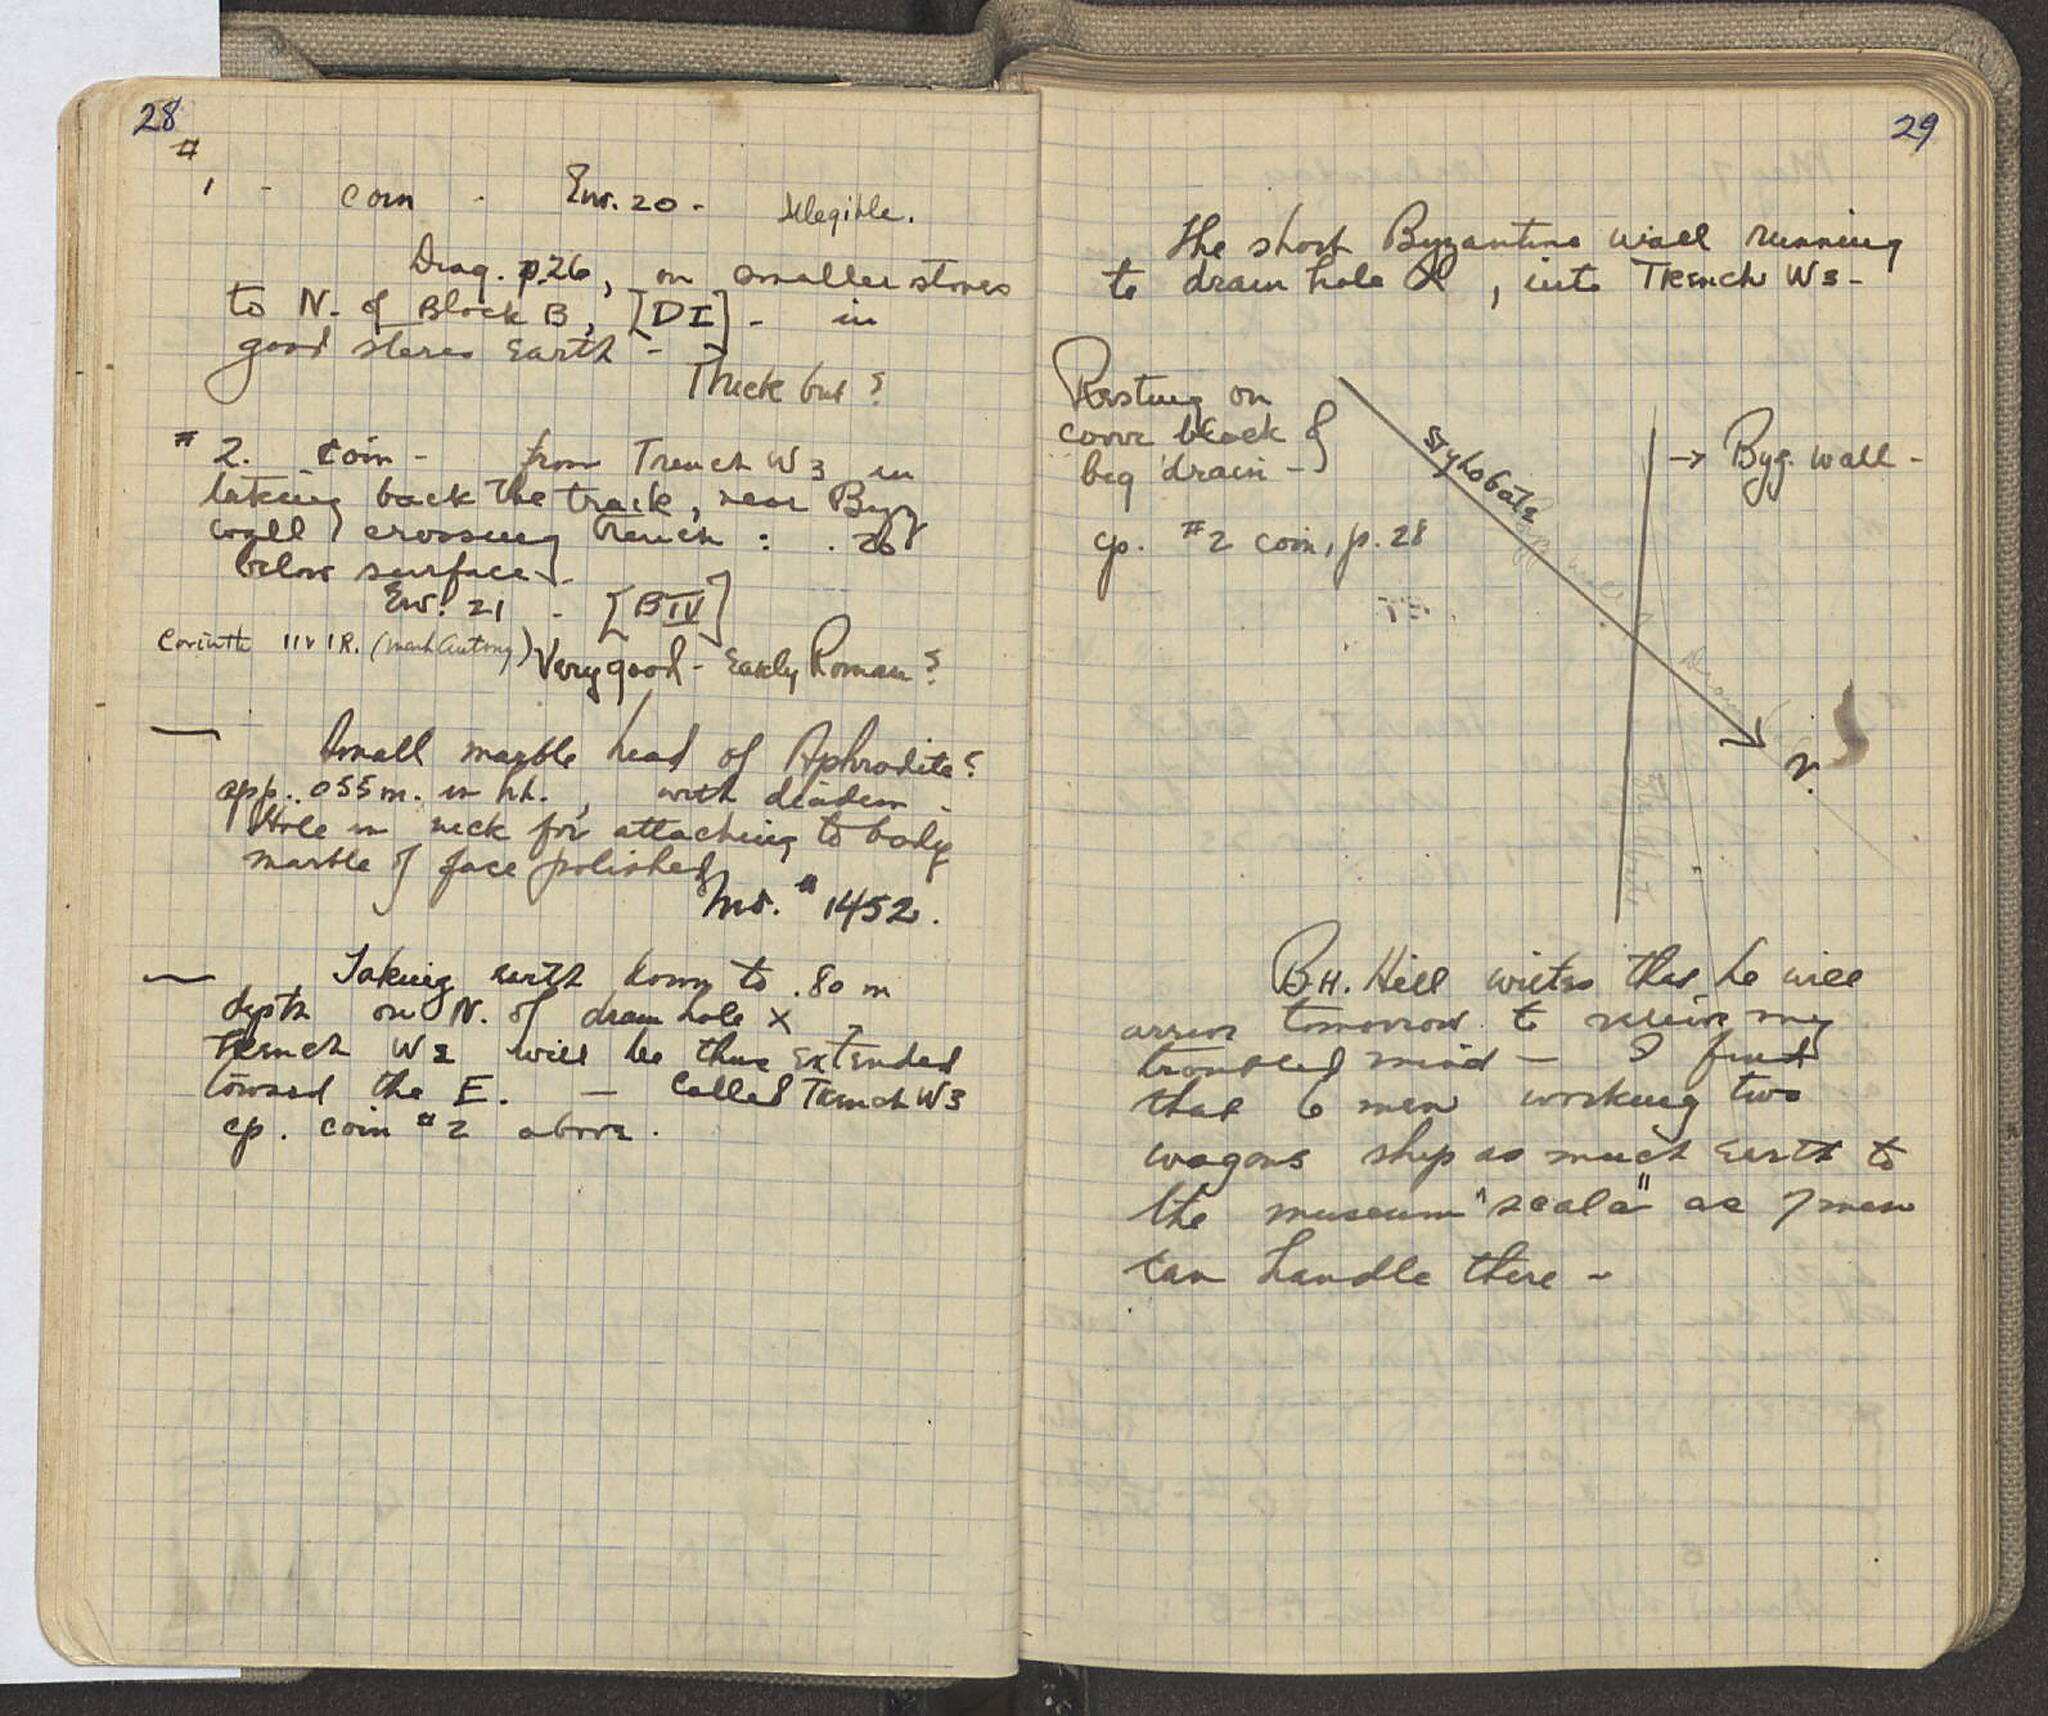 28
#
1 - coin - Env. 20 - Illegible.
Diag. p. 26, on smaller stones
to N. of Block B, [DI] - in
good stereo earth -
Thick but ?
# 2. coin - from Trench W3 in
taking back the track, near Byz
wall crossing trench : .26
below surface.
Env. 21 - [BIV]
Corinth II V I R. (Mark Antony) Very good - Early Roman ?
Small marble head of Aphrodite ?
app. .055 m. in ht., with diadem -
Hole in neck for attaching to body
marble of face polished
Inv. # 1452.
Taking earth down to .80 m
depth on N. of drain hole X
Trench W2 will be thus extended
toward the E. - Called Trench W3
cp. coin # 2 above.
29
The short Byzantine wall running
to drain hole X, into Trench W3 -
Resting on
cover block of
big drain -
cp. #2 coin, p. 28
Stylobate
→ Byz. wall -
N.
B.H. Hill writes that he will
arrive tomorrow to relieve my
troubled mind - I find
that 6 men working two
wagons ship as much earth to
the museum "scala" as 7 men
can handle there -